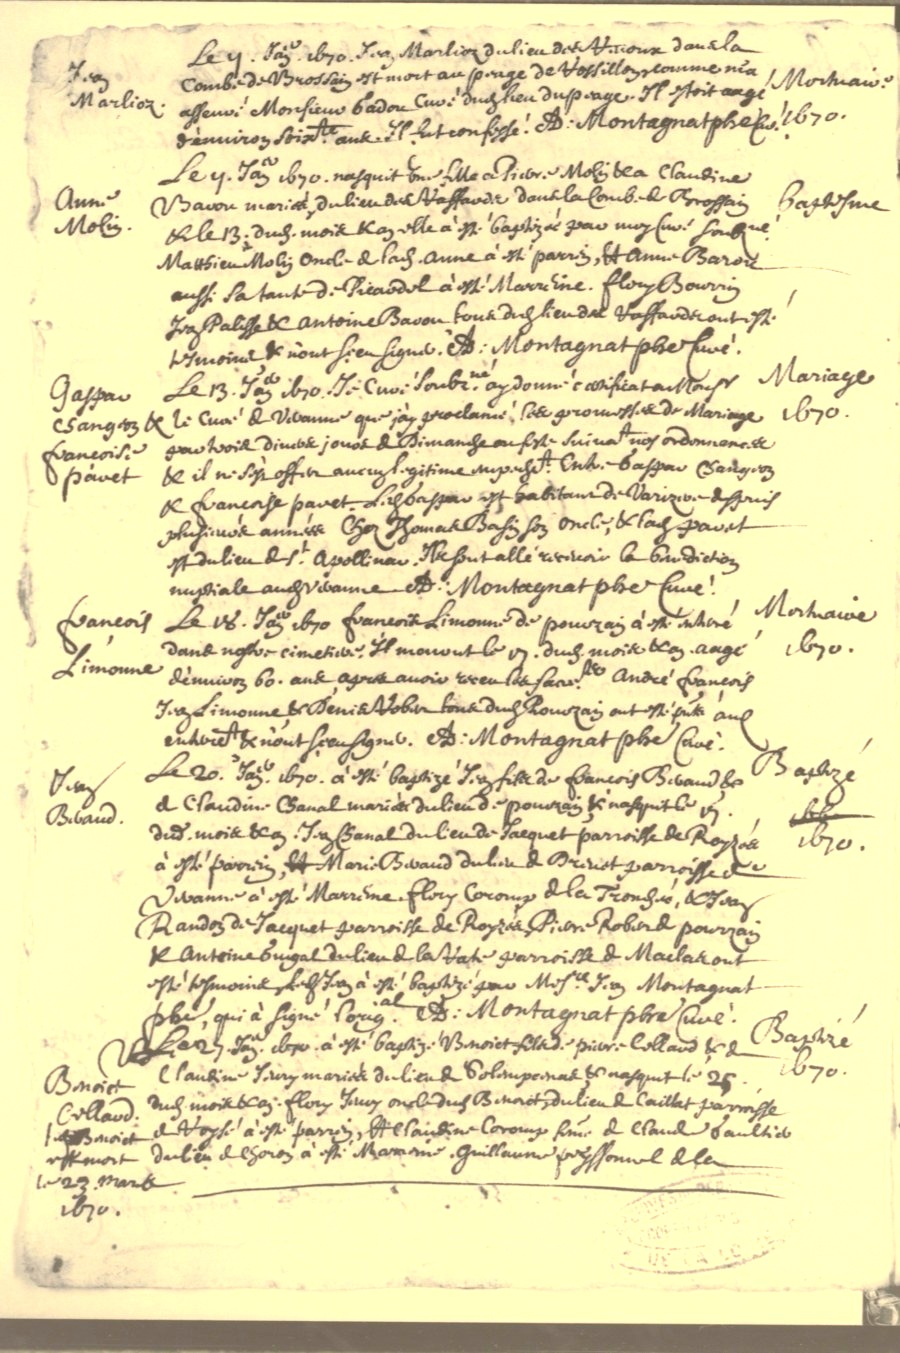 Jean
Marlioz.
Le 9. Janv. 1670. Jean Marlioz du lieu des dans la
Combe de Brossain est mort au peage de Rossillon, comme m'a
asseuré Monsieur badou Curé dud. lieu du peage. Il estoit aagé
d'environ soixte. ans. Il fut confessé. AD: Montagnat pbre Curé.
Mortuaire
1670.
Anne
Molin.
Le 9. Janv. 1670. nasquit une fille a Pierre Molin & a Claudine
Bavou mariés, du lieu des Vaffardes dans la Combe de Brossain
& le 13. dud. mois & an elle à esté baptizée par moy Curé soubzné.
Matthieu Molin oncle de lad. anne à esté parrin, & Anne Barou
aussi sa tante de Picardel à esté Marreine. flory Bourrin
Jean Palisse & Antoine Bavou tous dud. lieu des Vaffardes ont esté
tesmoins & n'ont sceu signer. AD: Montagnat pbre Curé.
baptesme
Gaspar
Changeon &
françoise
pavet
Le 13. Janv. 1670. Je Curé soubzné. ay donné certificat a Monsr
le Curé de Vivanne que j'ay proclamé les promesses de Mariage
par trois divers jours de Dimanche ou feste suivant nos ordonnances
& il ne s'est offert aucun legitime empecht. Entre Gaspar Changeon
& françoise pavet. Led. Gaspar est habitant de depuis
plusieurs années chez Thomas Bassin son oncle, & lad. pavet
est du lieu de St. Apollinar. Ils sont allé recevoir la benediction
nuptiale aud. Vivanne AD: Montagnat pbre Curé.
Mariage
1670.
françois
Limonne
Le 18. Janv. 1670 françois Limonne de pourzain à esté enterré
dans nostre cimetiere. Il mourut le 17. dud. mois & an. aagé
d'environ 60. ans apres avoir receu les sacrtz. André françois
Jean Limonne & Denis Rober tous dud. Pourzain ont esté pnts aud.
enterrt. & n'ont sceu signer. AD: Montagnat pbre Curé.
Mortuaire
1670.
Jean
Bivaud.
Le 20. Janv. 1670. à esté baptizé Jean fils de françois Bivaud
& Claudine Chanal mariés du lieu de pourzain & nasquit le 17.
dud. mois & an. Jean Chanal du lieu de Jacquet parroisse de Royzés
à esté parrin, & Marie Bivaud du lieu de parroisse de
Vivanne à esté Marreine. flory Coromp de la Tronchié, & Jean
Randon de Jacquet parroisse de Royzés, Pierre Rober de pourzain
& Antoine du lieu de la Vate parroisse de Maclas ont
esté tesmoins, led. Jean à esté baptizé par Mesre. Jean Montagnat
pbre, qui à signé l'origal. AD: Montagnat pbre Curé.
Baptizé
1670.
Benoict
Collaud.
Benoict
est mort
le 23. mars
1670.
Le 27. Janv. 1670. à esté baptizé Benoict fils de pierre Collaud & de
Claudine mariés du lieu de & nasquit le 25.
dud. mois & an. flory oncle dud. Benoict, du lieu de Caillat parroisse
de à esté parrin, & Claudine Coromp fme. de Claude Gaultier
du lieu de à esté Marreine. Guillaume peyssonnel de la
Baptizé
1670.